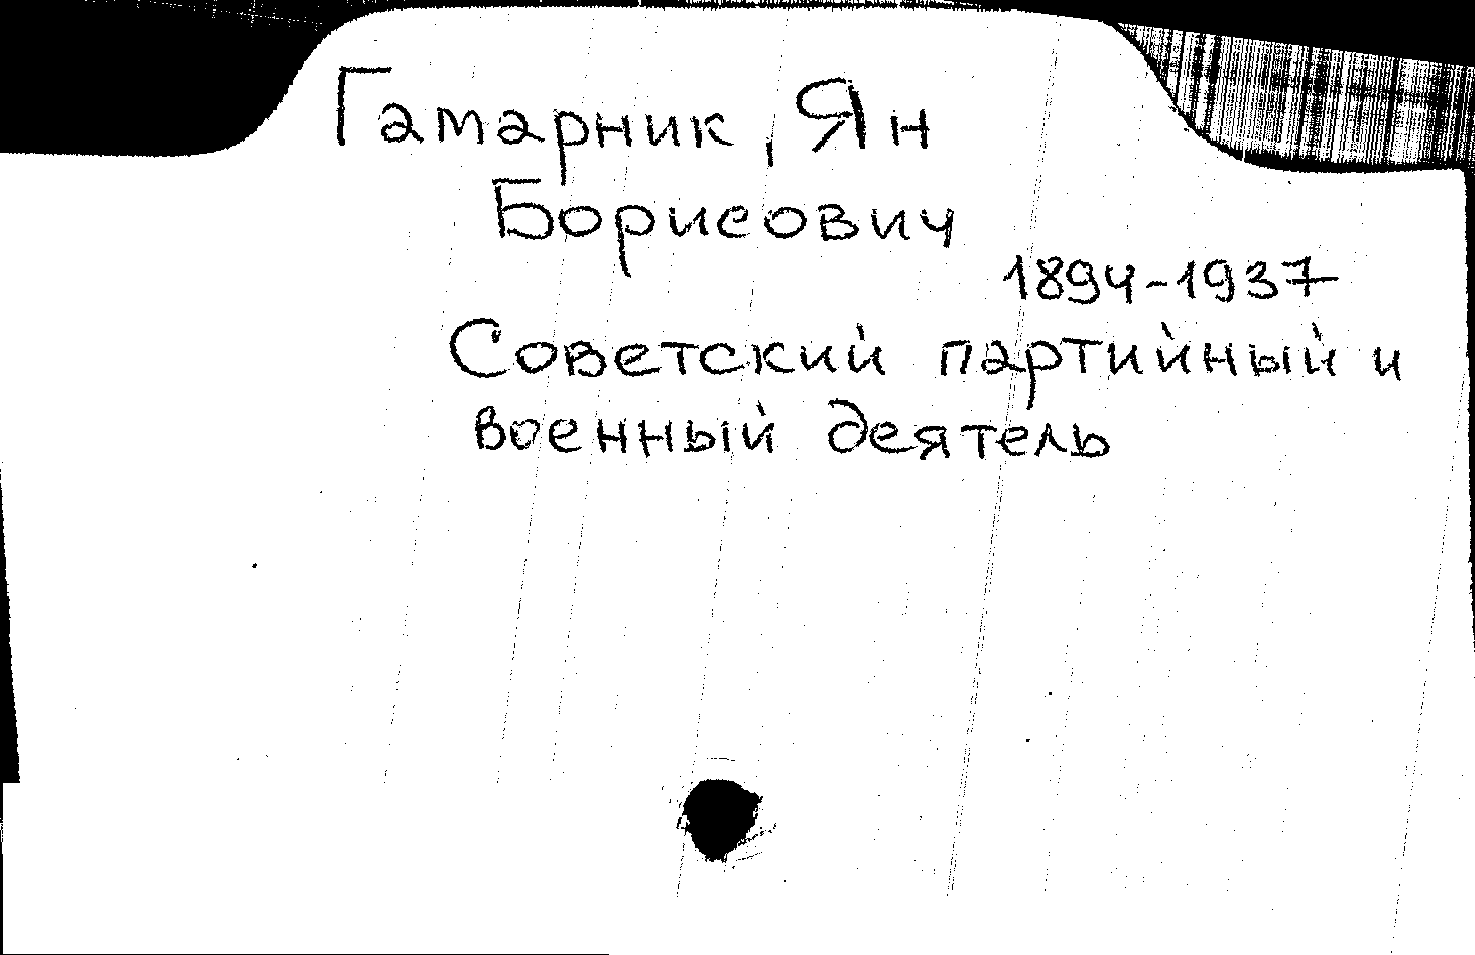 Гамарник, Ян
Борисович
1894-1937
Советский партийный и
военный деятель